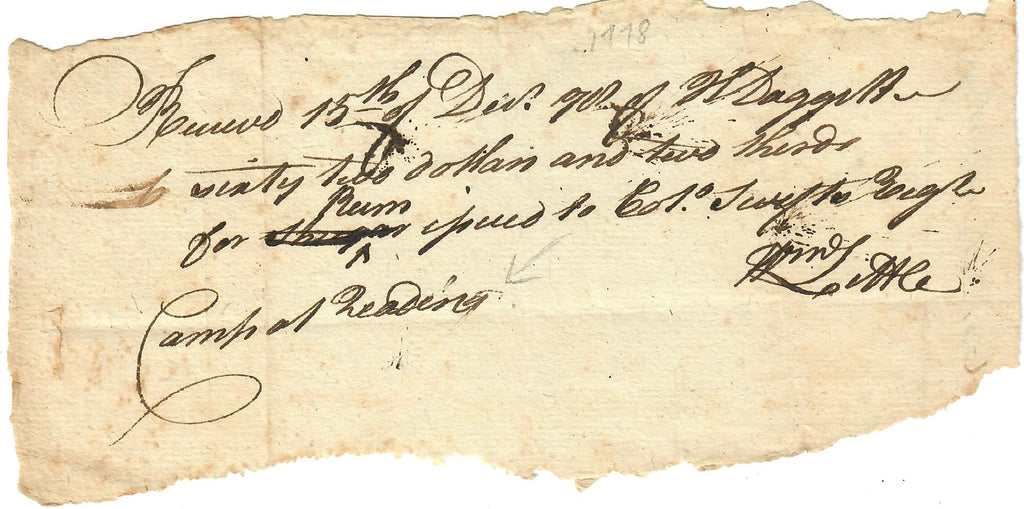 1778
Receved 15th of Decr. 78 of H Daggett
sixty two dollars and two thirds
Rum
for Shugar isued to Col. Swifts Regt
Wm Little
Camp at Reading